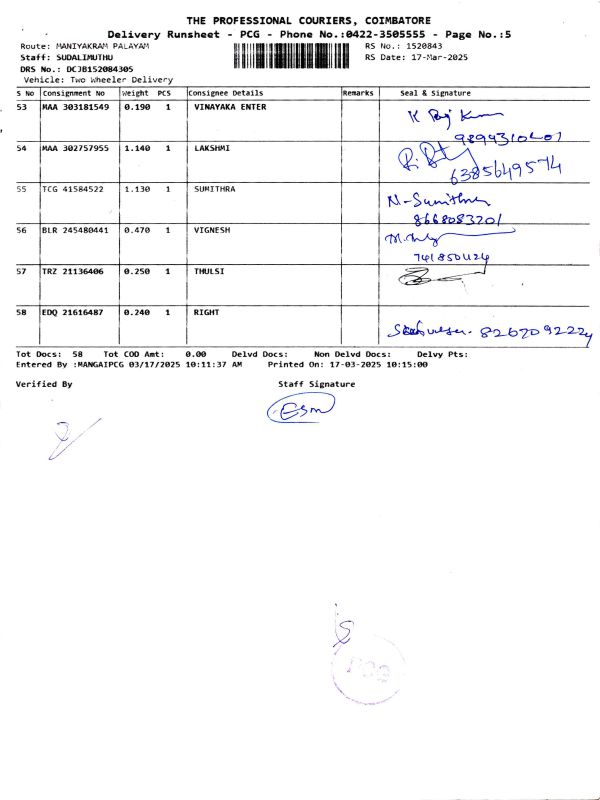 THE PROFESSIONAL COURIERS, COIMBATORE
Delivery Runsheet - PCG - Phone No.:0422-3505555 - Page No.:5
Route: MANIYAKRAM PALAYAM RS No.: 1520843
Staff: SUDALIMUTHU RS Date: 17-Mar-2025
DRS No.: DCJB152084305
Vehicle: Two Wheeler Delivery
S No Consignment No Weight PCS Consignee Details Remarks Seal & Signature
53 MAA 303181549 0.190 1 VINAYAKA ENTER
54 MAA 302757955 1.140 1 LAKSHMI
6385649574
55 TCG 41584522 1.130 1 SUMITHRA N-Sumithra
8668083201
56 BLR 245480441 0.470 1 VIGNESH
57 TRZ 21136406 0.250 1 THULSI
58 EDQ 21616487 0.240 1 RIGHT
Tot Docs: 58 Tot COD Amt: 0.00 Delvd Docs: Non Delvd Docs: Delvy Pts:
Entered By :MANGAIPCG 03/17/2025 10:11:37 AM Printed On: 17-03-2025 10:15:00
Verified By Staff Signature
PCG